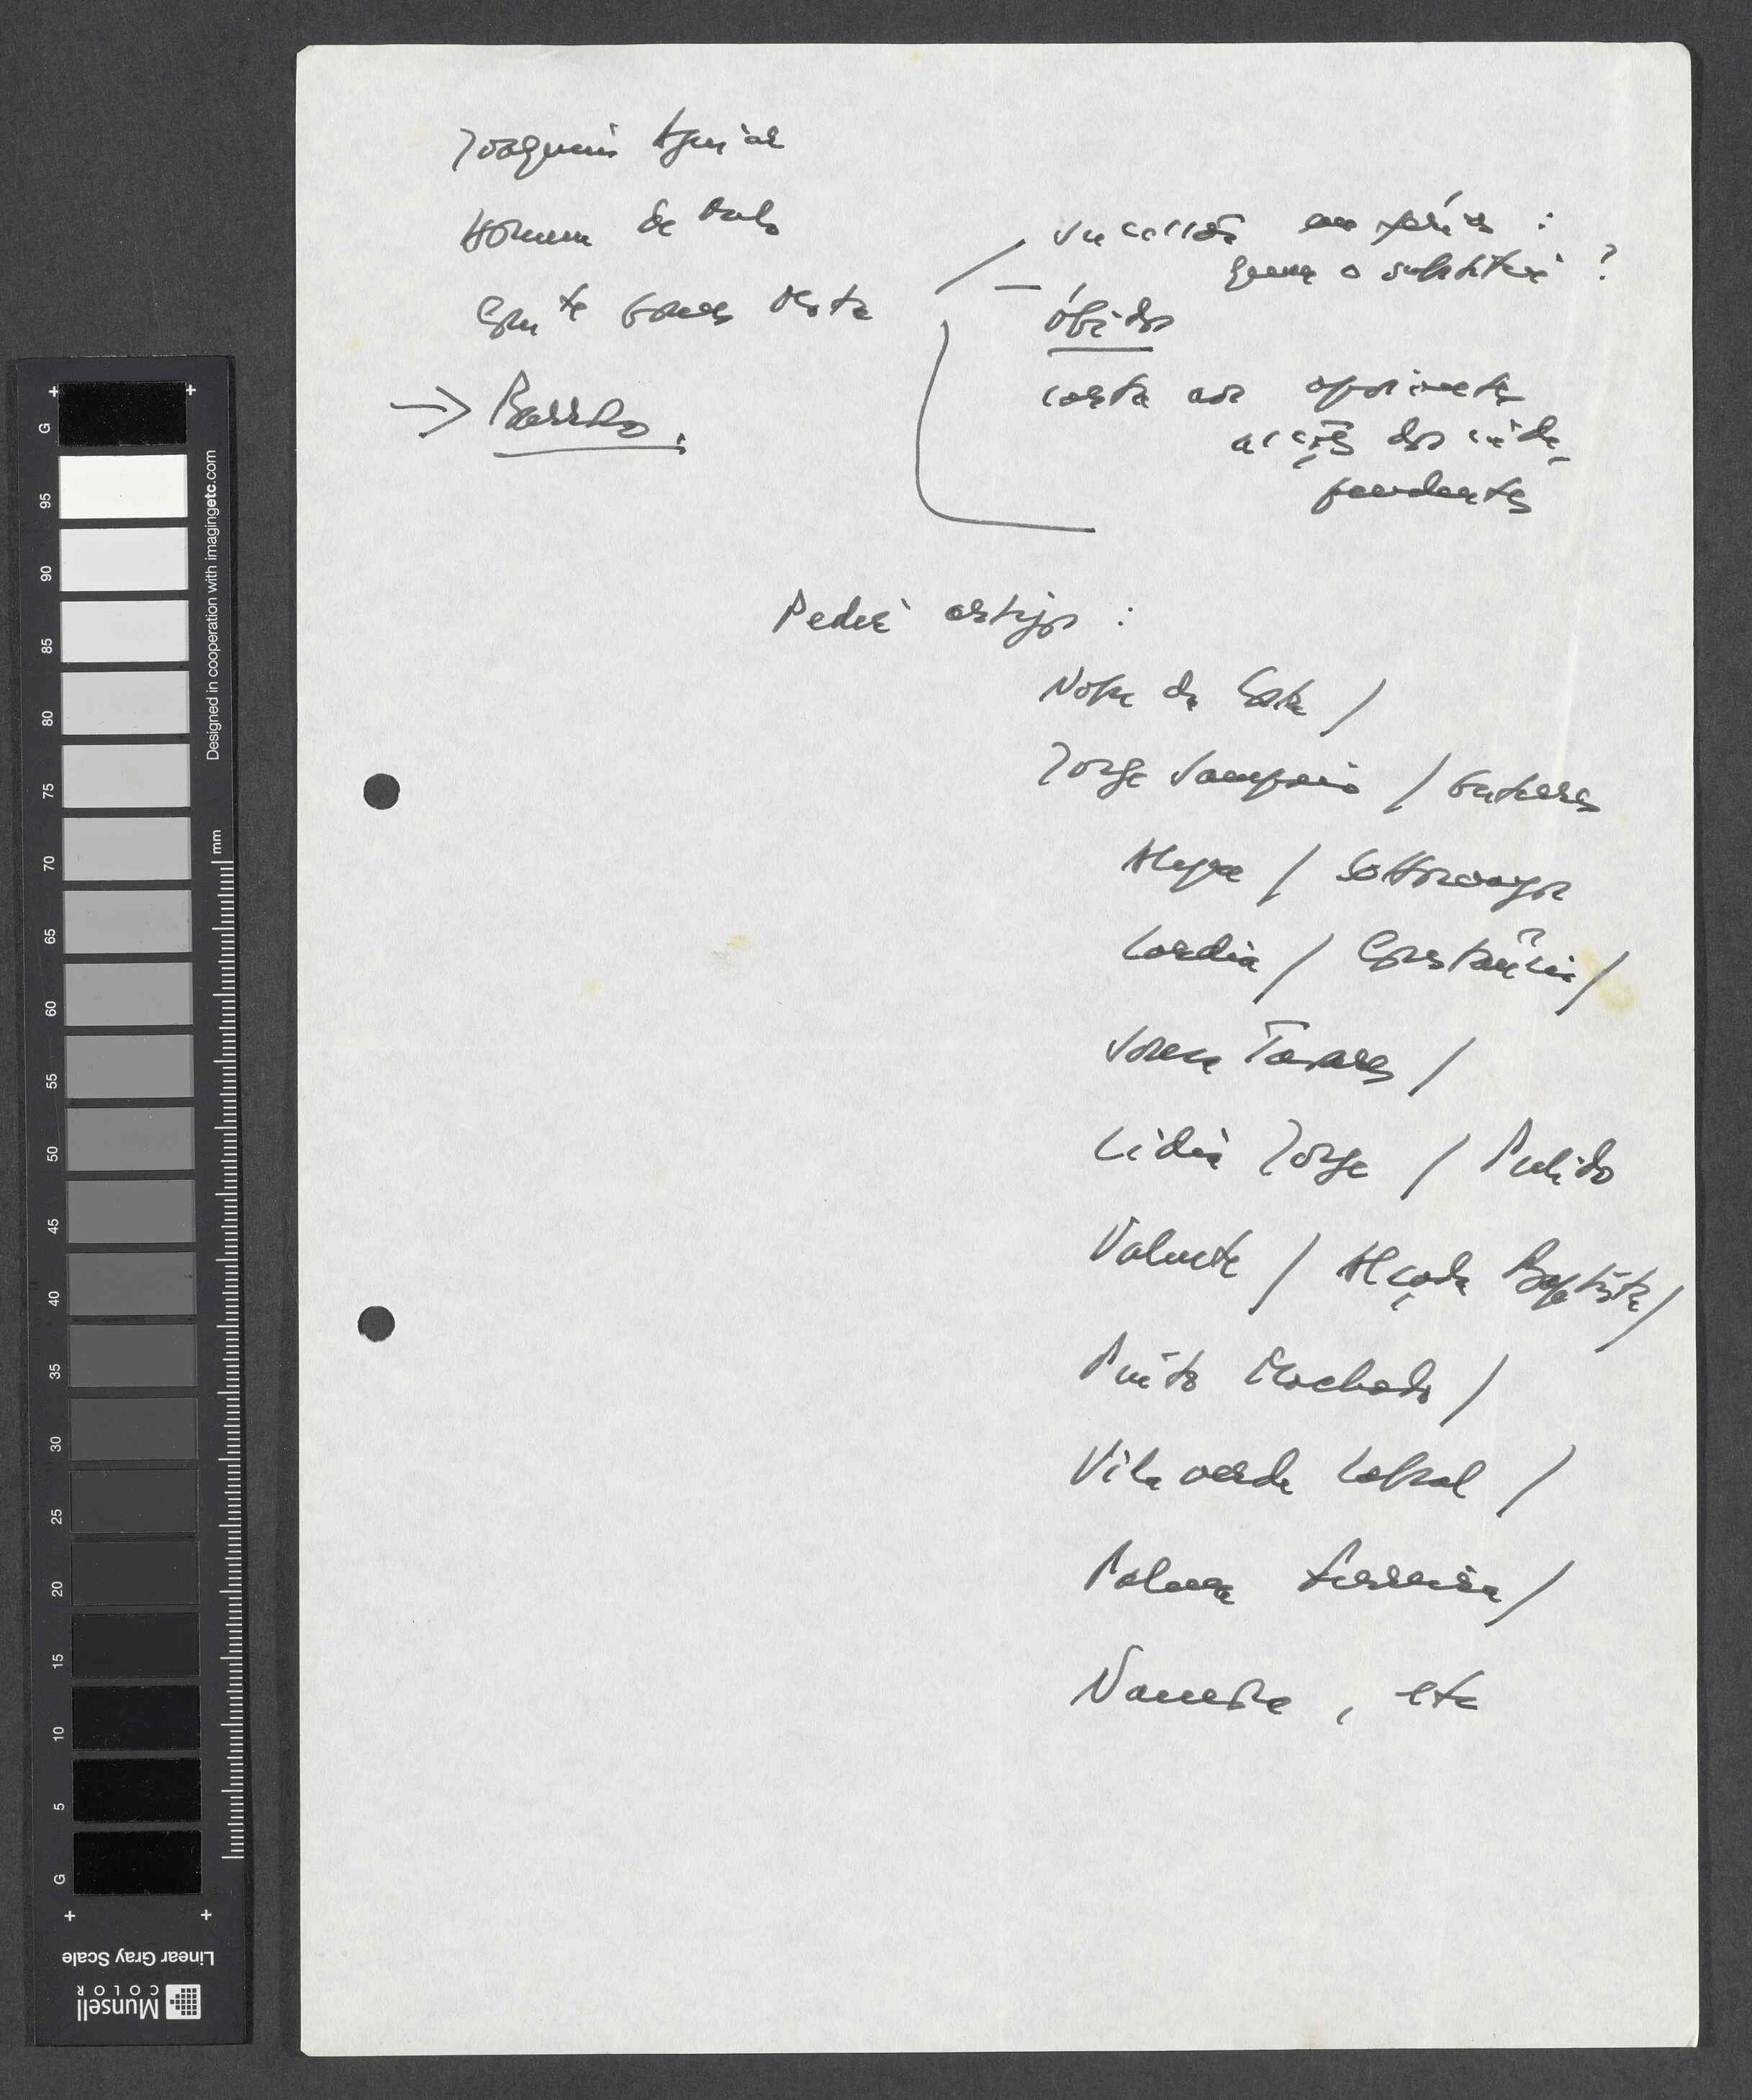 Joaquim Aguiar
Homem de Melo
Gomes Mota
→ Barroso.
Sucessão em férias :
quem o substitui ?
— Óbidos
carta aos apoiantes
acção dos inde-
pendentes
Pedir artigos :
Nobre da Costa /
Jorge Sampaio / Guterres
Alegre / Sottomayor
Cardia / Constâncio /
Sousa Tavares /
Lídia Jorge / Pulido
Valente / Alçada Baptista /
Pinto Machado /
Vilaverde Cabral /
Palma Ferreira /
Namora, etc
G
95
90
85
80
75
70
65
60
55
50
45
40
35
30
25
20
15
10
5
G
mm
Designed in cooperation with imagingetc.com
Linear Gray Scale
Munsell
COLOR